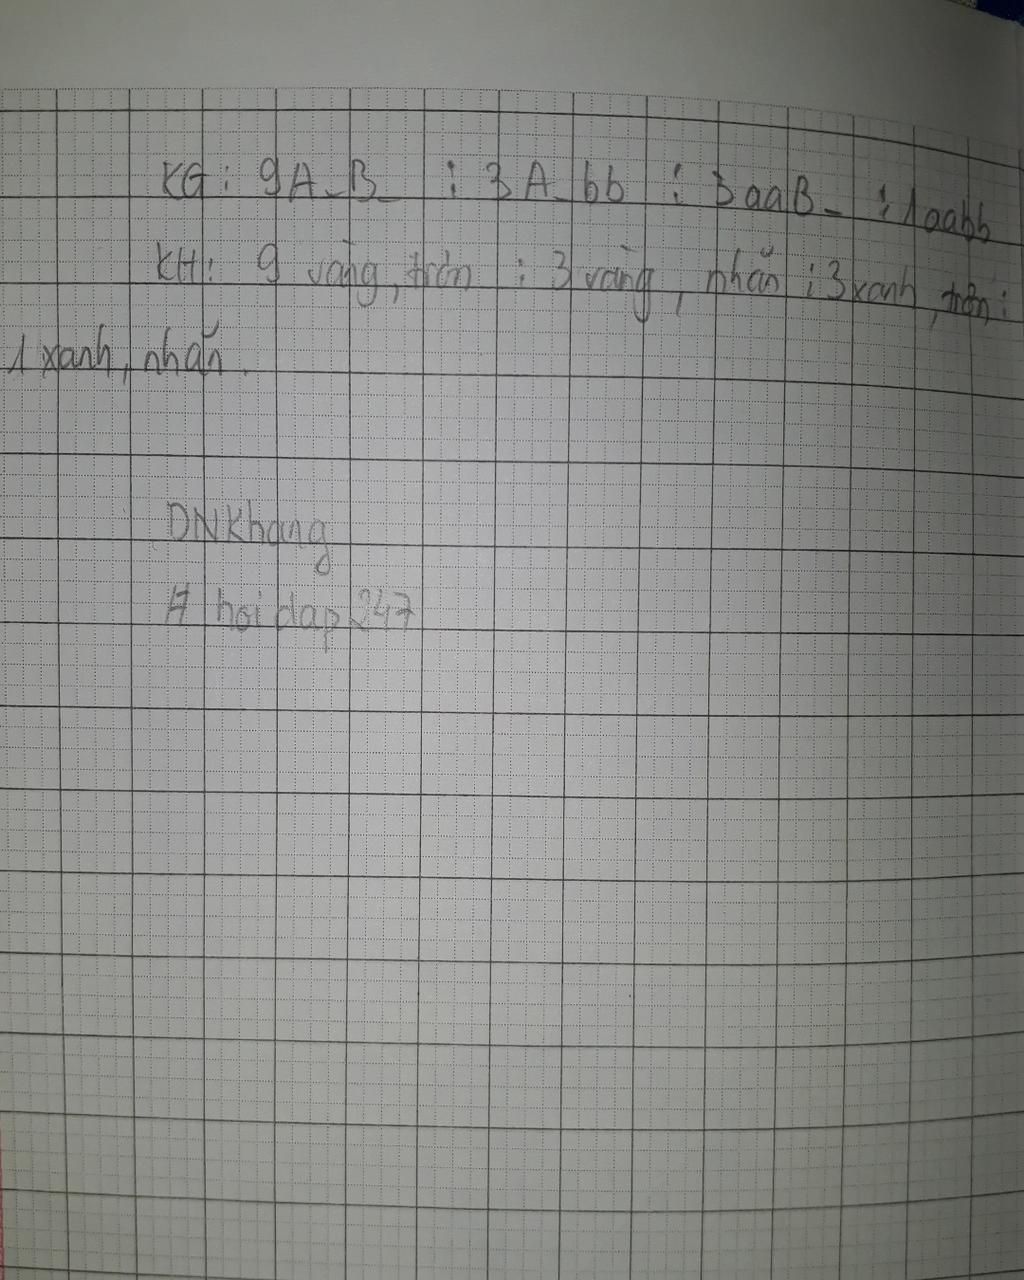 KG: 9A_B_ : 3A_bb : 3aaB_ : 1aabb
KH: 9 vàng, trơn : 3 vàng, nhăn : 3 xanh, trơn :
1 xanh, nhăn.
DNKhang
# hoidap247